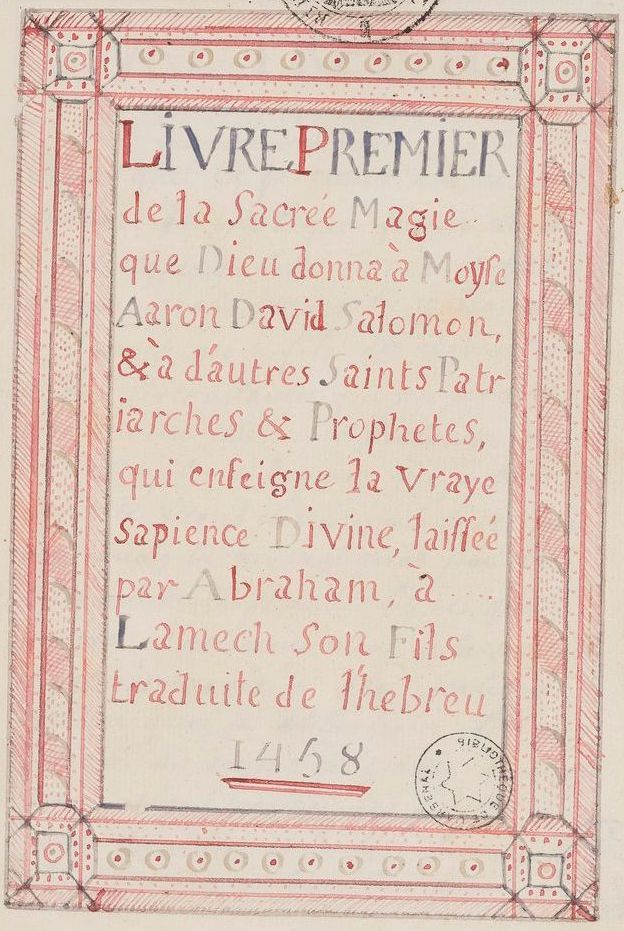 LIVRE PREMIER
de la Sacrée Magie
que Dieu donna à Moyſe
Aaron David Salomon,
& à d'autres Saints Patr
iarches & Prophetes,
qui enſeigne la vraye
Sapience Divine, laiſſée
par Abraham, à ....
Lamech Son Fils
traduite de l'hebreu
1458
BIBLIOTHEQUE DE L'ARSENAL